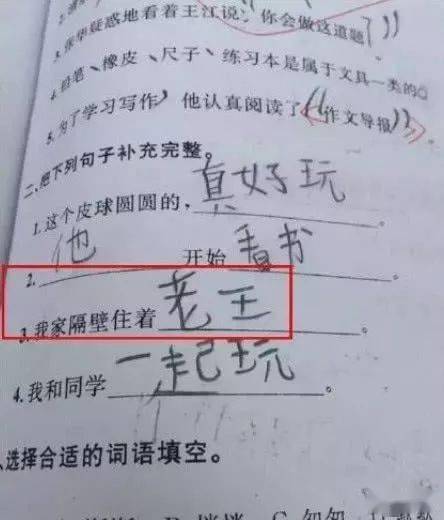 3.张华疑惑地看着王江说:你会做这道题
4.铅笔、橡皮、尺子、练习本是属于文具一类的。
5.为了学习写作,他认真阅读了《作文导报》
二、把下列句子补充完整。
1.这个皮球圆圆的,真好玩。
2.他开始看书。
3.我家隔壁住着老王。
4.我和同学一起玩。
选择合适的词语填空。